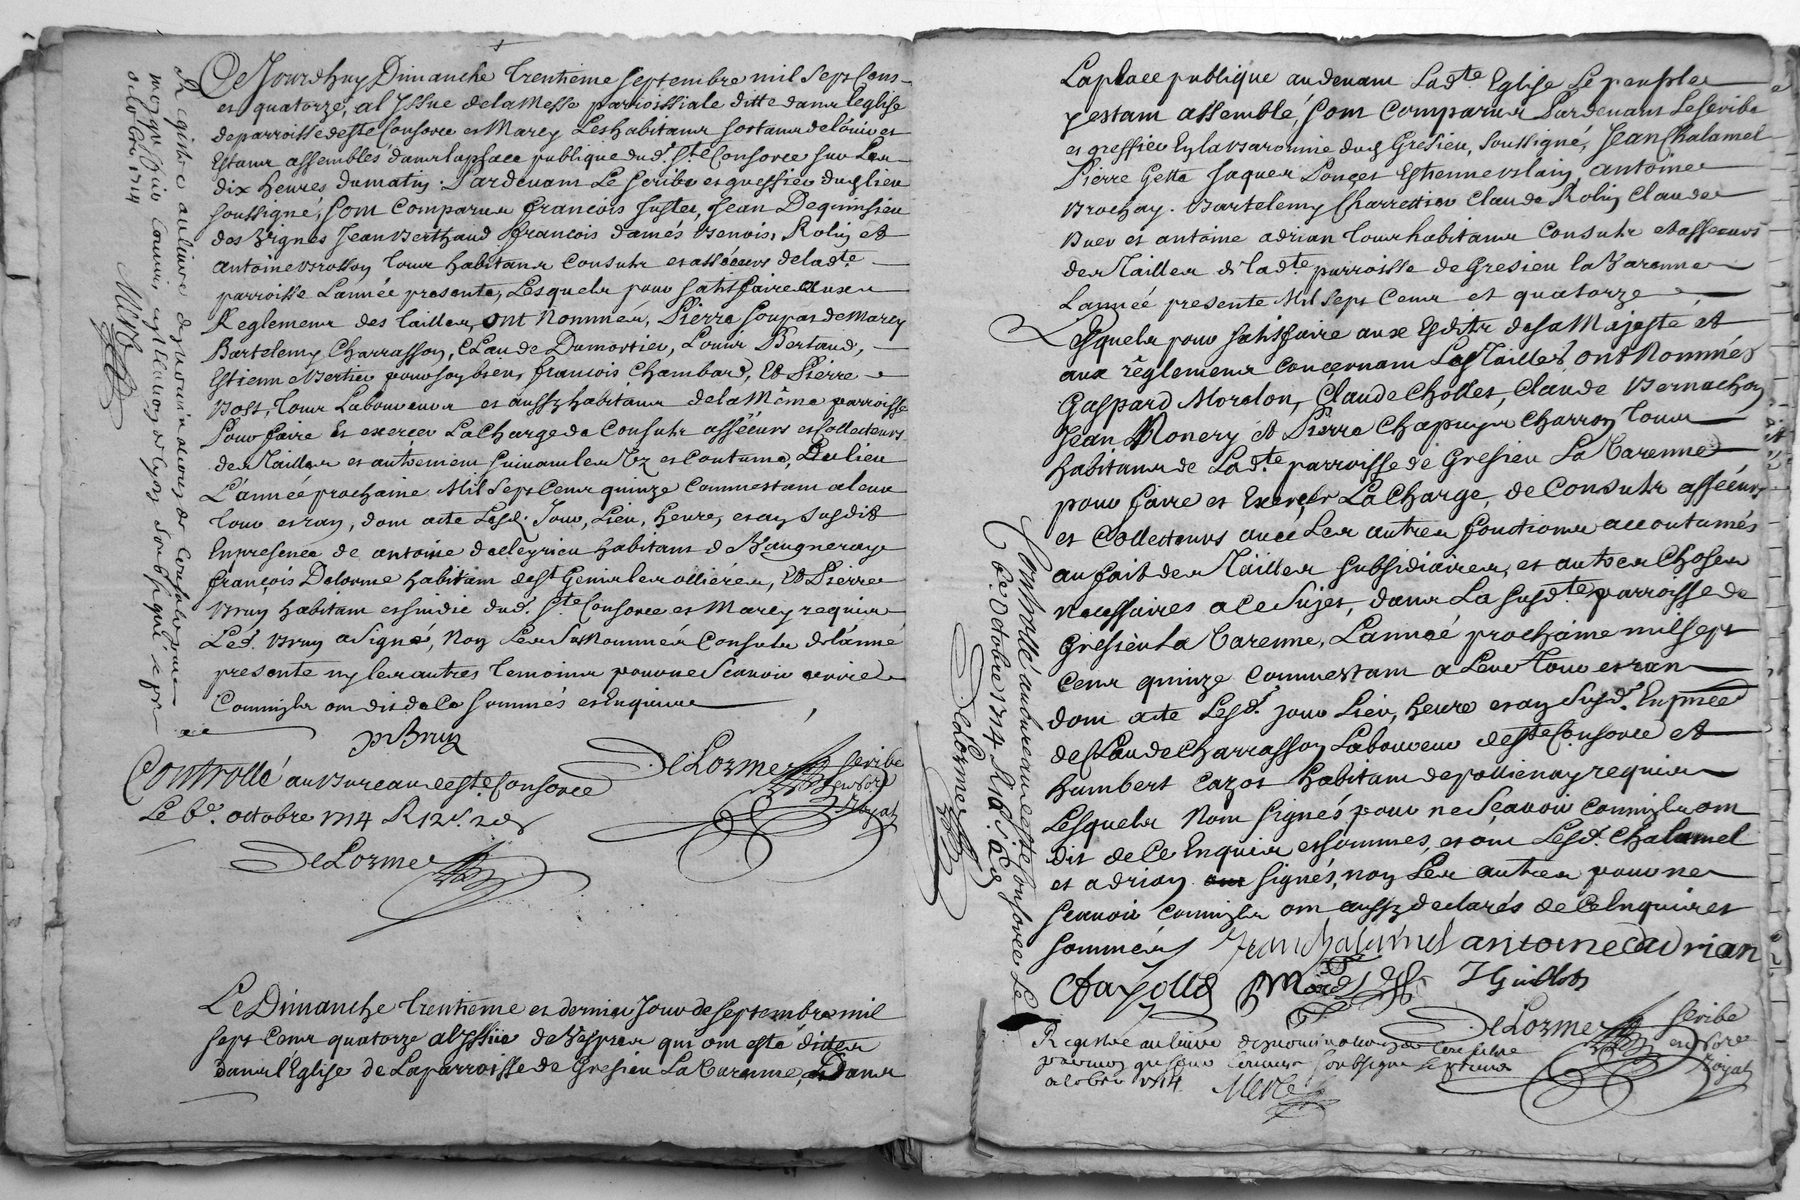 Ce Jourdhuy Dimanche trentieme septembre mil sept cens
et quatorze, a l'Issue de la Messe parroissialle ditte dans l'eglise
de parroisse de Ste Consorce et Marcy Les habitans sortans de l'ouir et
Estans assemblés dans la place publique dud. Ste Consorce sur Les
dix heures du matin. Pardevant Le scribe et greffier dud lieu
soussigné, sont comparus françois Juster, Jean Dequinsieu
des Vignes Jean Berthaud françois damés Benoist Rolin et
antoine Brosson tous habitans Consuls et asséeurs de lade
parroisse L'année presente, Lesquels pour satisfaire aux
Reglemens des tailles, ont Nommés, Pierre Soupat de Marcy
Bartelemy Charrasson, Claude Dumortier, Louis Bertaud,
Estienne Bertier pour son bien, françois Chambard, Et Pierre
Bost, tous Laboureurs et aussy habitans de la Même parroisse
Pour faire et exercer La Charge de Consuls asséeurs et Collecteurs
des Tailles et autrement suivant les Uz et Coutume, Du lieu
L'année prochaine Mil Sept Cens quinze Comme estant a leur
tour et ran, dont acte Lesd. Jour, Lieu, heure, et an susdit
En presence de antoine habitant de Vaugneray
françois Delorme habitant de st Genis les ollieres, Et Pierre
Brun habitant et sindic dud. Ste Consorce et Marcy requis
Led. Brun a signé, Non Les sus Nommés Consuls de lanné
presente ny les autres temoins pour ne scavoir ecrire
Comme ils ont dit de ce sommés et enquis
p Brun
DeLorme scribe
heredre
Royal
Controllé au Bureau de Ste Consorce
Le 6e. octobre 1714 R 12s. 2d
DeLorme
Registré au livre de nomination de Consuls par
moy greffier commis en l'election de Lyon soubsigné le pr
octobre 1714
Merle
Le Dimanche trentieme et dernier Jour de septembre mil
sept cens quatorze a l'Issüe de Vespres qui ont esté dittes
dans l'Eglise de La parroisse de Gresieu La Varenne, et Dans
La place publique au devant Ladte Eglise Le peuple
y estant assemblé, sont Comparus Pardevant Le scribe
et greffier En la Baronnie dud Gresieu, soussigné, Jean Chalamel
Pierre Getta Jaques Ponçet Estienne Blain, antoine
Brochay. Bartelemy Charretier Claude Rolin Claude
Buer et antoine adrian tous habitans Consuls et asseeurs
des Tailles de Ladte parroisse de Gresieu la Varenne
L'année presente Mil Sept Cens et quatorze
Lesquels pour satisfaire aux Edits de sa Majesté et
aux réglemens concernant Les Tailles, ont Nommés
Gaspard Morelon, Claude Chollet, Claude Bernachon
Jean Monery et Pierre Chapuys Charron tous
habitans de Ladte parroisse de Gresieu La Varenne
pour faire et Exercer La Charge de Consuls asséeurs
et Collecteurs avec Les autres fonctions accoutumés
au fait des Tailles subsidiaires, et autres Choses
necessaires a ce sujet, dans La susdte parroisse de
Gresieu La Varenne, L'année prochaine mil sept
cens quinze comme estant a Leur tour et ran
dont acte Lesd. jour Lieu, heure et an susd. En pnce
de Claude Charrasson Laboureur de Ste Consorce et
humbert Cazot habitant de pollionay requis
Lesquels Nont signés pour ne scavoir comme ils ont
dit de ce Enquis et sommes, et ont Lesd. Chalamel
et adrian signés, non Les autres pour ne
scavoir comme ils ont aussy declarés de ce Enquis et
sommés
Jean Chalamel antoine adrian
J Guillot
DeLorme scribe
heredre
Royal
Registré au livre de nomination des Consuls
par moy greffier commis soubsigné le
octobre 1714 Merle
Controllé au bureau de Ste Consorce Le
6e. Octobre 1714 R 16s. 2d
DeLorme